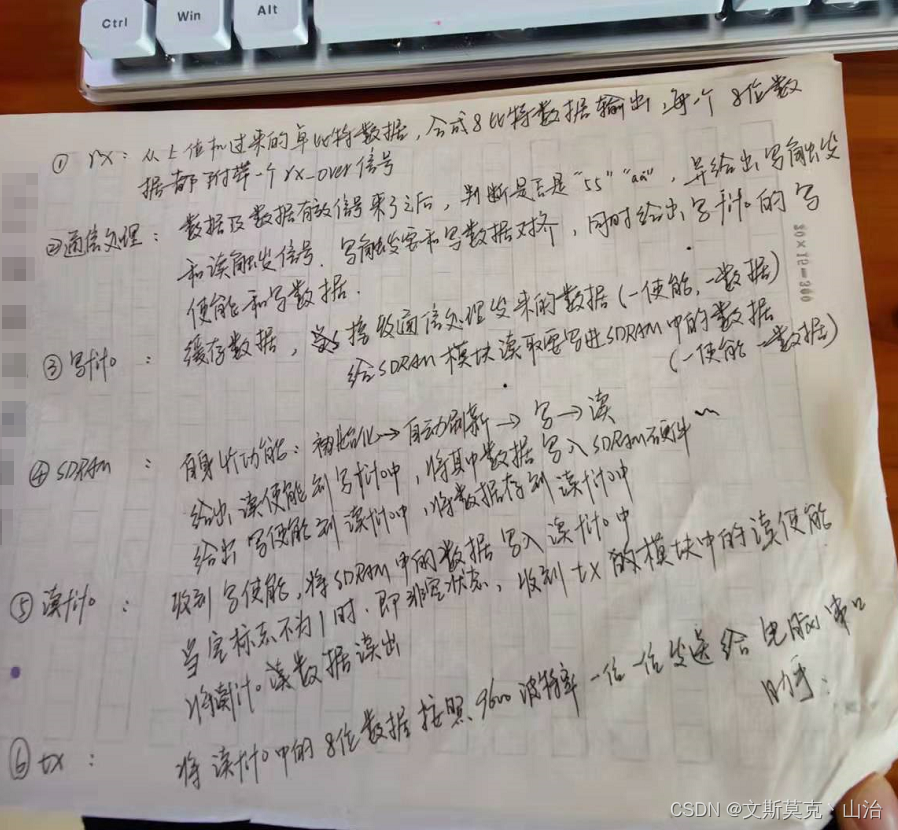 Ctrl
Win
Alt
① rx: 从上位机过来的单比特数据,合成8比特数据输出,每个8位数
据都附带一个rx_over信号
②通信处理: 数据及数据有效信号来了之后,判断是否是"55""aa",并给出写触发
和读触发信号.写触发要和写数据对齐,同时给出写fifo的写
使能和写数据.
③写fifo: 缓存数据,接收通信处理发来的数据(一使能,一数据)
给SDRAM模块读取要写进SDRAM中的数据
(一使能 一数据)
④SDRAM: 自身4个功能:初始化→自动刷新→写→读
给出读使能到写fifo中,将其中数据写入SDRAM硬件
给出写使能到读fifo中,将数据存到读fifo中
⑤读fifo: 收到写使能,将SDRAM中的数据写入读fifo中
当空标志不为1时.即非空状态,收到tx的模块中的读使能
将读fifo读数据读出
⑥tx: 将读fifo中的8位数据按照9600波特率一位一位发送给电脑串口
助手.
20×15=300
CSDN @文斯莫克丶山治